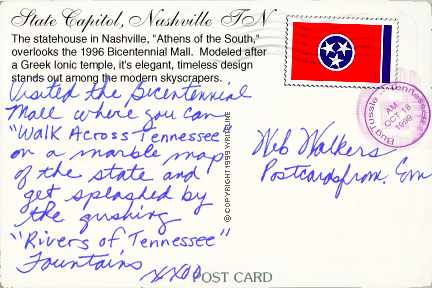 State Capitol, Nashville TN
The statehouse in Nashville, "Athens of the South,"
overlooks the 1996 Bicentennial Mall. Modeled after
a Greek Ionic temple, it's elegant, timeless design
stands out among the modern skyscrapers.
Visited the Bicentennial
Mall where you can
"Walk Across Tennessee"
on a marble map
of the state and
get splashed by
the gushing
"Rivers of Tennessee"
Fountains
xxoo
© COPYRIGHT 1999 VYRLTEINE
Bug Tussle, Tennessee
AM
OCT 18
1999
Web Walkers
Postcardsfrom.Com
POST CARD